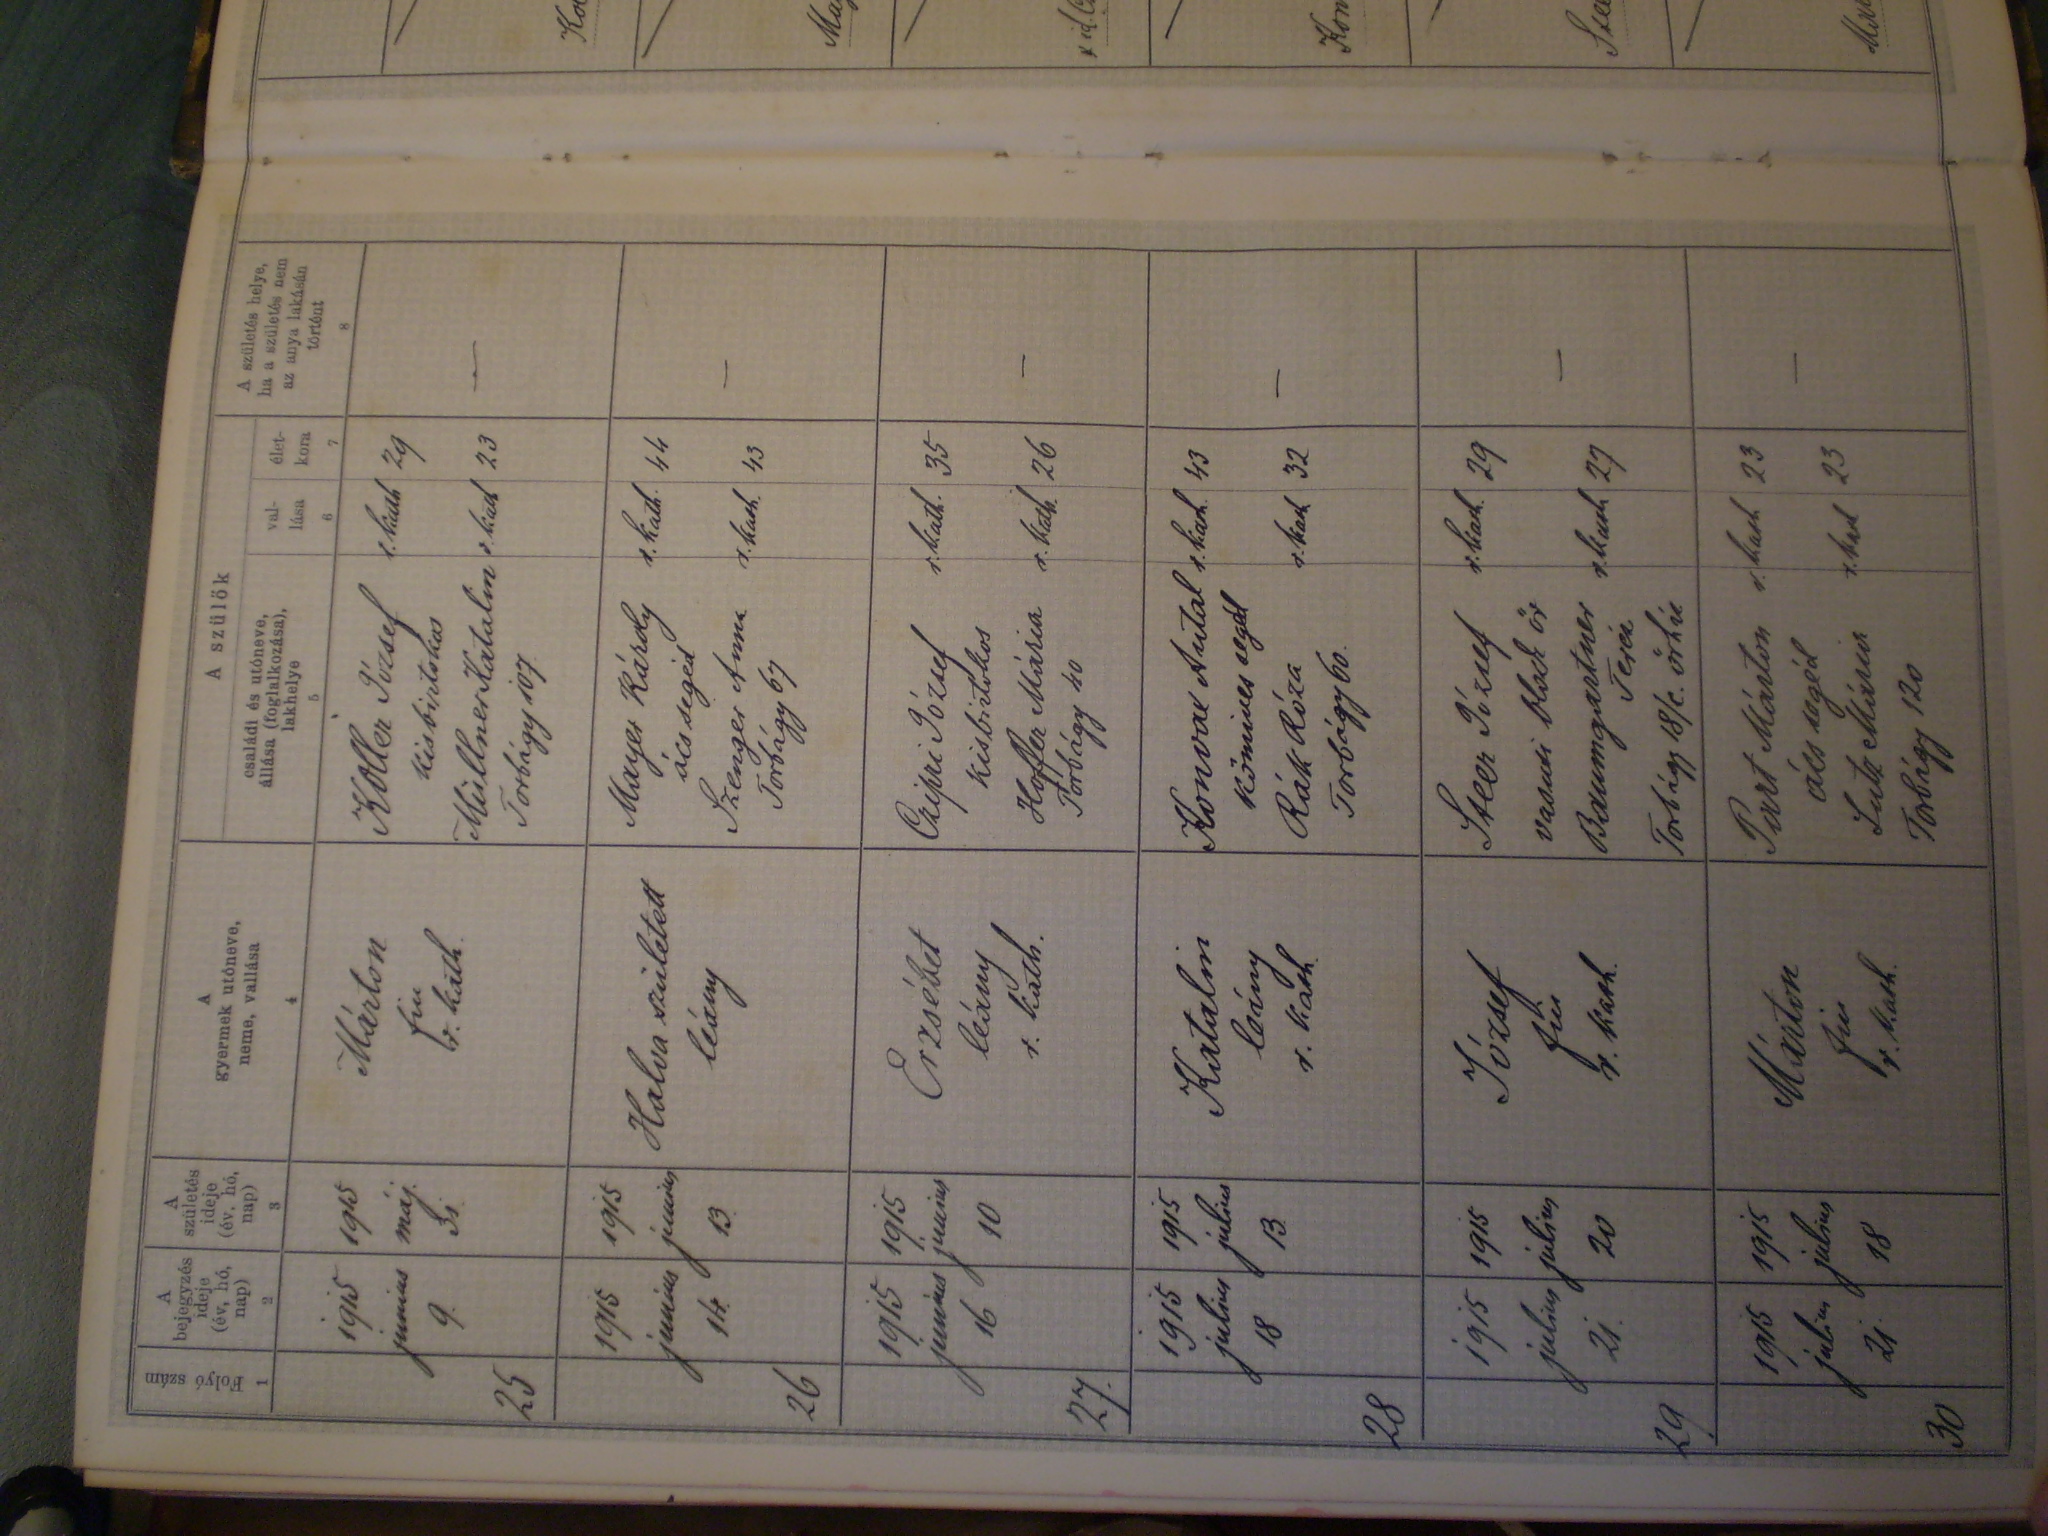 Folyó szám
1
A
bejegyzés
ideje
(év, hó,
nap)
2
A
születés
ideje
(év, hó,
nap)
3
A
gyermek utóneve,
neme, vallása
4
A szülők
családi és utóneve,
állása (foglalkozása),
lakhelye
5
val-
lása
6
élet-
kora
7
A születés helye,
ha a születés nem
az anya lakásán
történt
8
25
1915
junius
9.
1915
máj.
31.
Márton
fiu
r. kath.
Koller József
kisbirtokos
Müllner Katalin
Torbágy 107.
r. kath
29
r. kath
23
—
26
1915
junius
14.
1915
junius
13.
Halva született
leány
Mayer Károly
ács segéd
Szenger Anna
Torbágy 67
r. kath.
44
r. kath.
43
—
27.
1915
junius
16
1915
junius
10
Erzsébet
leány
r. kath.
Czipri József
kisbirtokos
Hoffer Mária
Torbágy 40
r. kath.
35
r. kath.
26
—
28
1915
julius
18
1915
julius
13.
Katalin
leány
r. kath.
Antal
kőmives segéd
Rák Róza
Torbágy 60.
r. kath.
43
r. kath
32
—
29
1915
julius
21.
1915
julius
20
József
fiu
r. kath.
Steer József
vasuti block őr
Baumgartner
Teréz
Torbágy 18/c. őrház
r. kath.
29
r. kath
27
—
30
1915
julius
21.
1915
julius
18
Márton
fiu
r. kath.
Márton
ács segéd
Lutz Mária
Torbágy 120
r. kath
23
r. kath
23
—